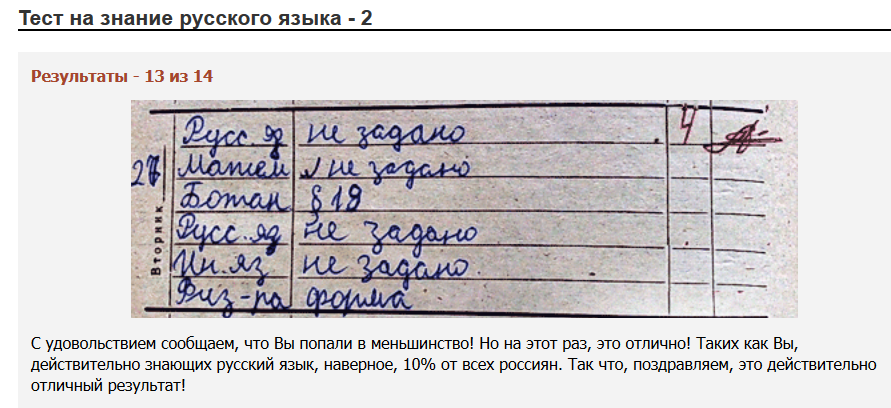 Тест на знание русского языка - 2
Результаты - 13 из 14
Русс.яз не задано 4
Матем √ не задано
Ботан § 19
Русс.яз не задано
Ин.яз не задано
Физ-ра форма
27
Вторник
С удовольствием сообщаем, что Вы попали в меньшинство! Но на этот раз, это отлично! Таких как Вы,
действительно знающих русский язык, наверное, 10% от всех россиян. Так что, поздравляем, это действительно
отличный результат!